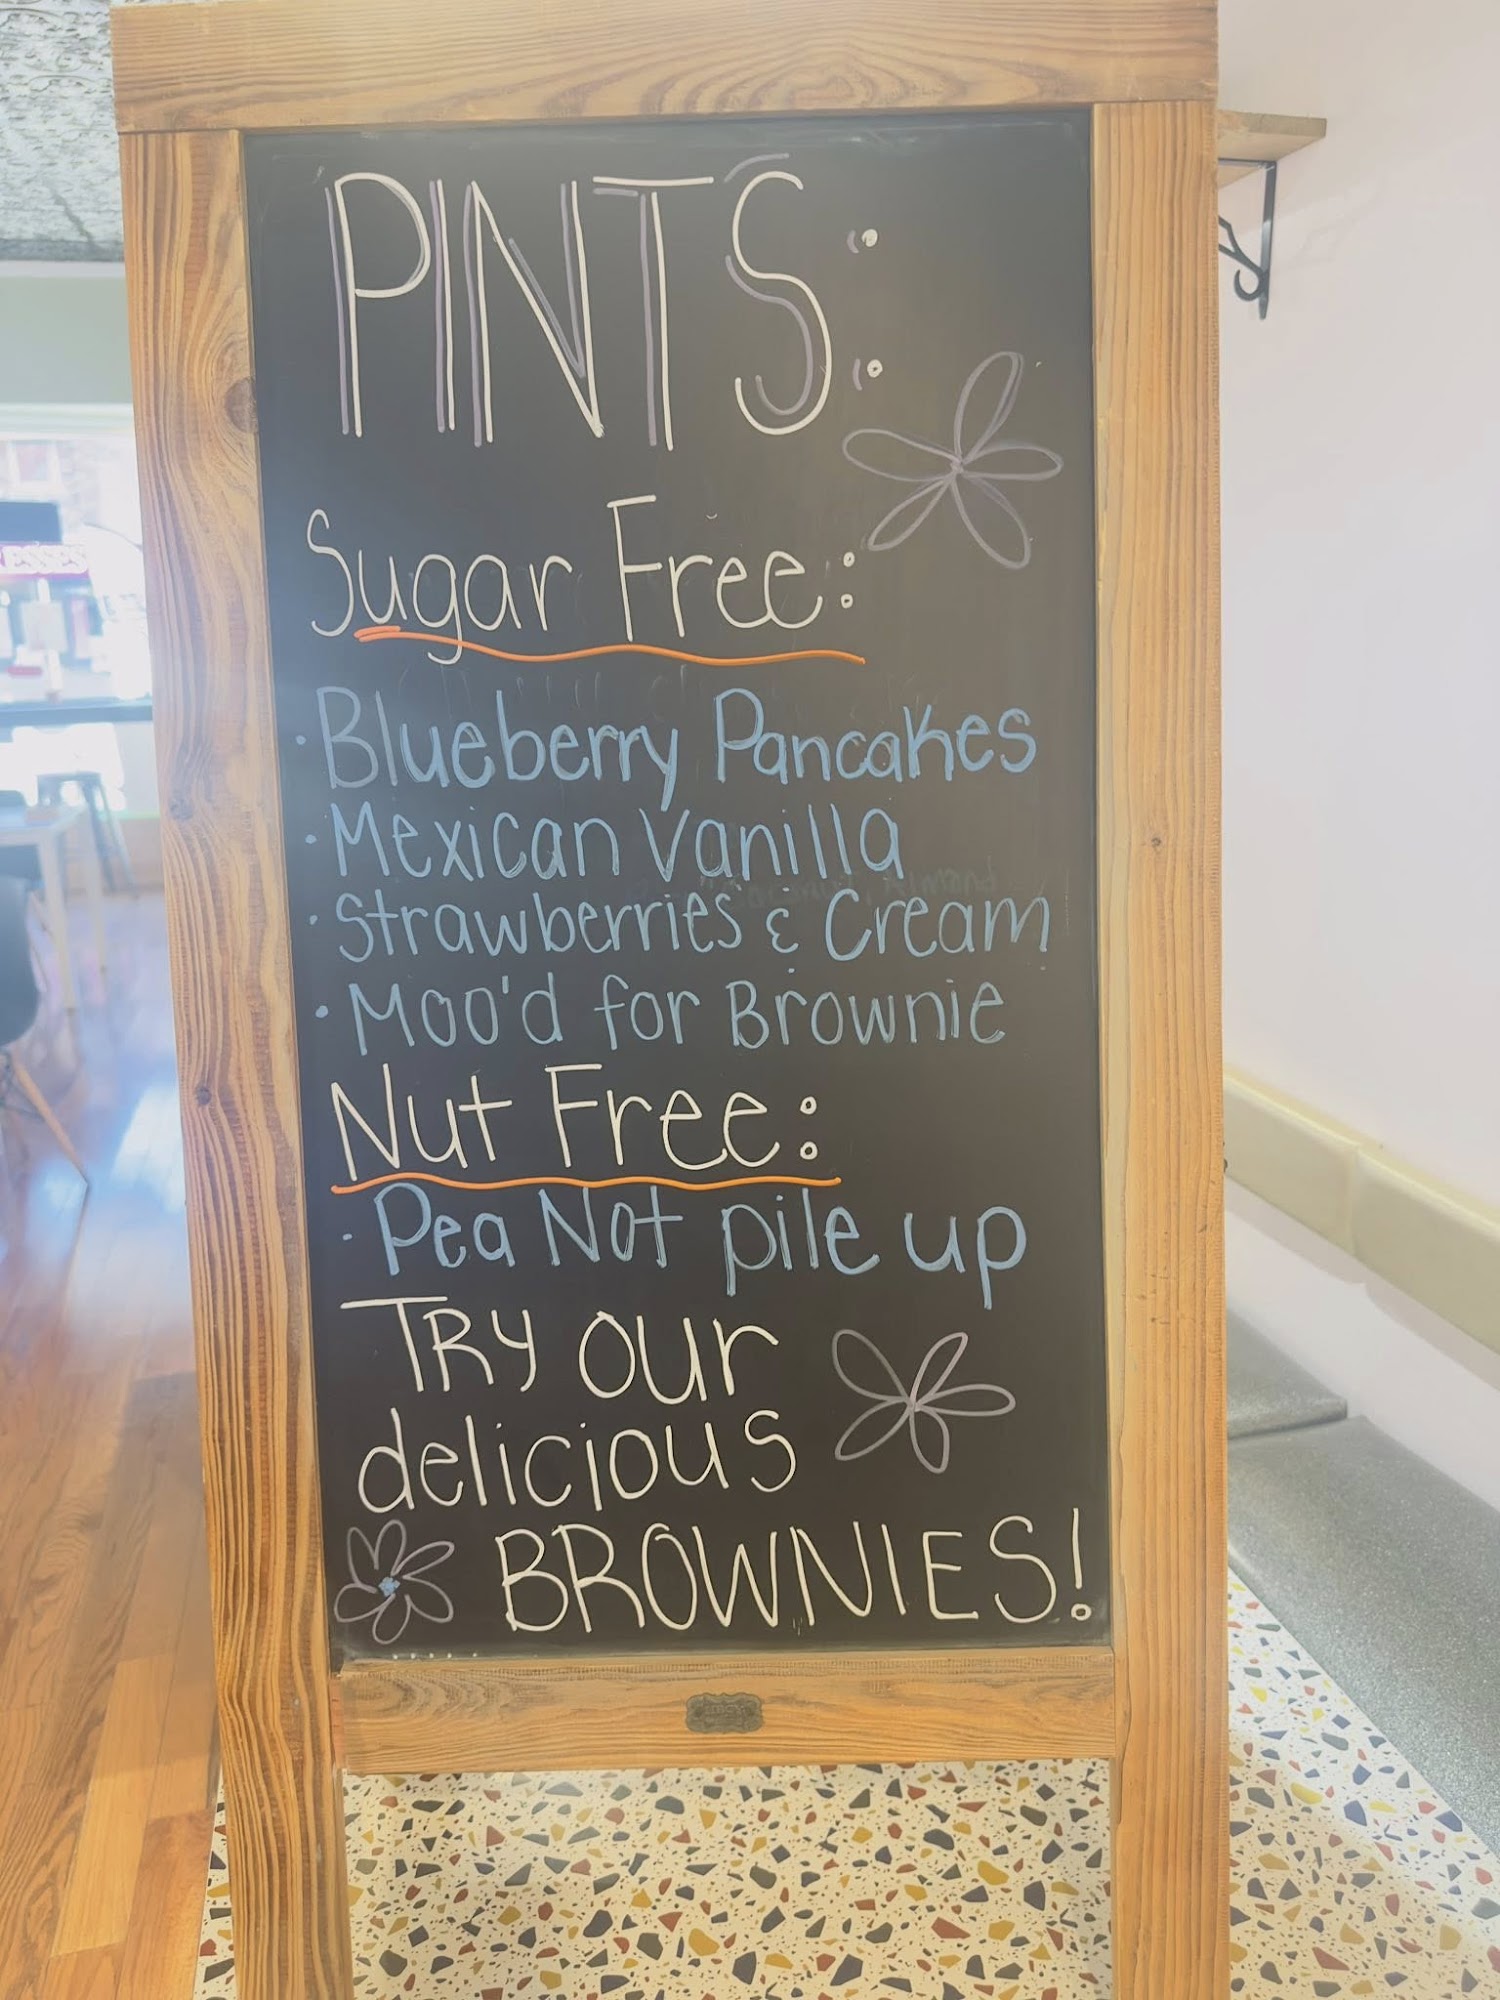 PINTS:
Sugar Free:
· Blueberry Pancakes
· Mexican Vanilla
· Strawberries & Cream
· Moo'd for Brownie
Nut Free:
· Pea Not pile up
TRy our
delicious
BROWNIES!